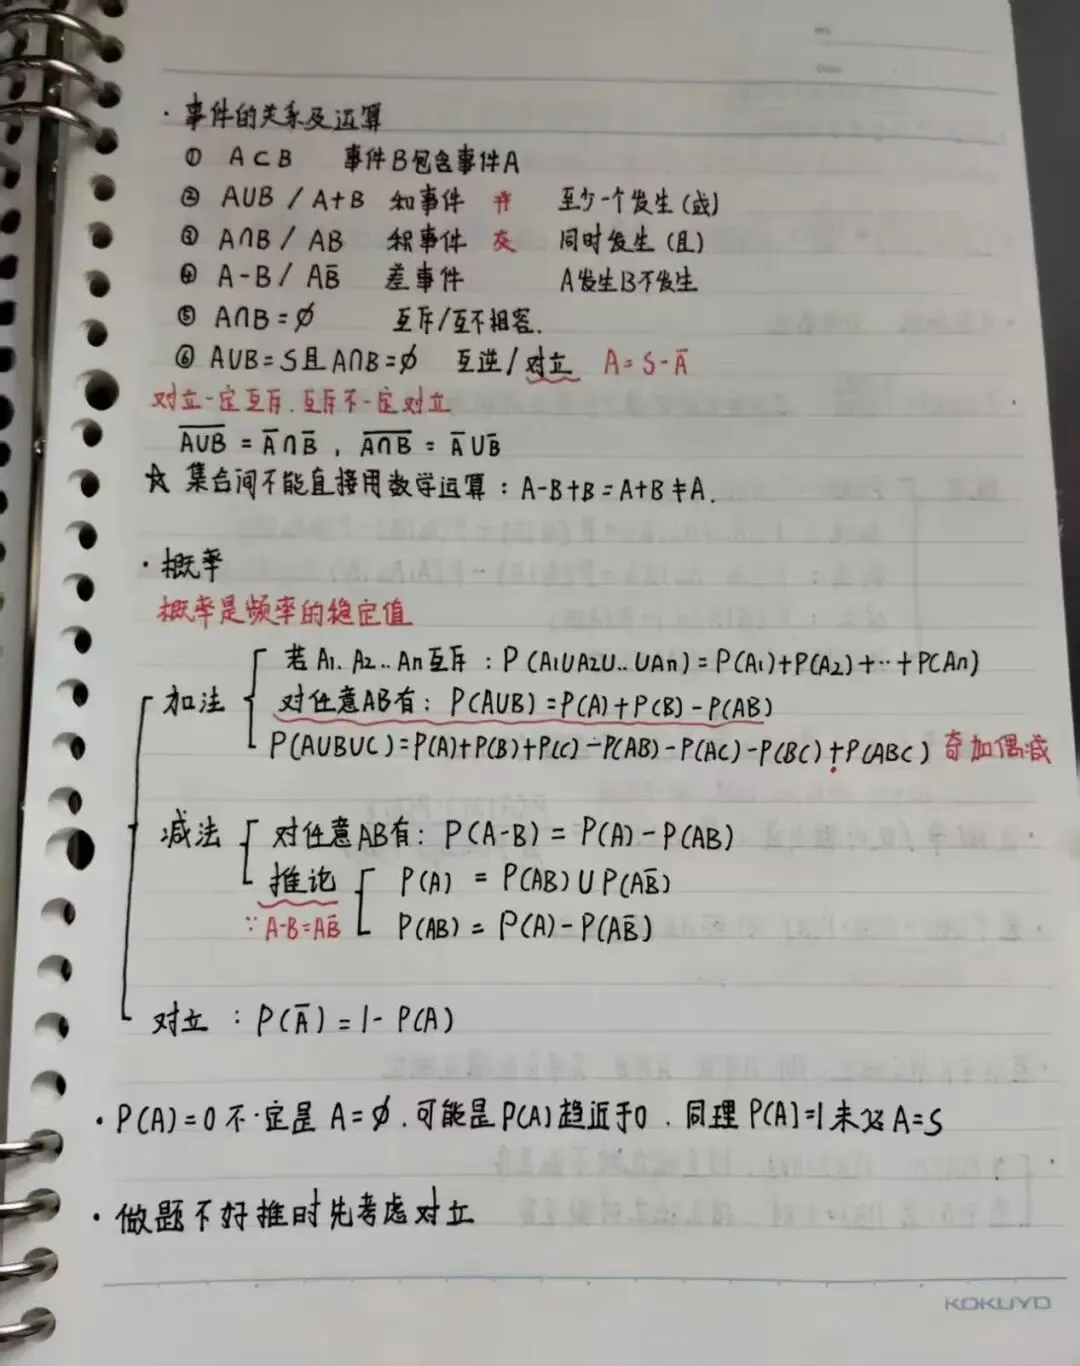 · 事件的关系及运算
① A⊂B 事件B包含事件A
② A∪B / A+B 和事件 并 至少一个发生(或)
③ A∩B / AB 积事件 交 同时发生(且)
④ A-B / AB̄ 差事件 A发生B不发生
⑤ A∩B=∅ 互斥/互不相容.
⑥ A∪B=S且A∩B=∅ 互逆/对立 A=S-Ā
对立一定互斥.互斥不一定对立
A̅∪̅B̅ = Ā∩B̄ , A̅∩̅B̅ = Ā∪B̄
☆ 集合间不能直接用数学运算:A-B+B=A+B≠A.
· 概率
概率是频率的稳定值
加法
若A₁.A₂..An互斥:P(A₁∪A₂∪..∪An)=P(A₁)+P(A₂)+···+P(An)
对任意AB有:P(A∪B)=P(A)+P(B)-P(AB)
P(A∪B∪C)=P(A)+P(B)+P(C)-P(AB)-P(AC)-P(BC)+P(ABC) 奇加偶减
减法 对任意AB有:P(A-B)=P(A)-P(AB)
推论 P(A) = P(AB)∪P(AB̄)
∵A-B=AB̄ P(AB) = P(A)-P(AB̄)
对立 :P(Ā)=1-P(A)
· P(A)=0不一定是A=∅.可能是P(A)趋近于0.同理P(A)=1未必A=S
· 做题不好推时先考虑对立
KOKUYO